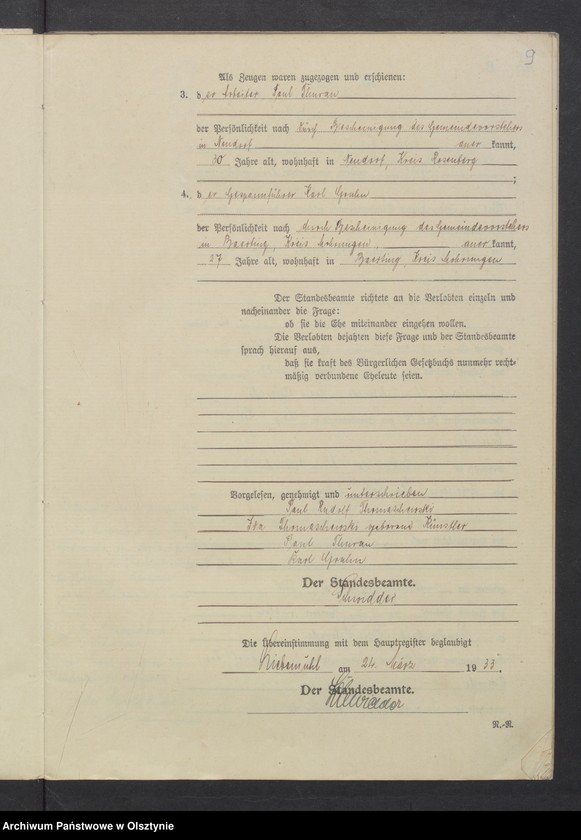 9
Als Zeugen waren zugezogen und erschienen:
3. der Arbeiter Paul Thurau
der Persönlichkeit nach durch Bescheinigung des Gemeindevorstehers
in Neudorf aner kannt,
30 Jahre alt, wohnhaft in Neudorf, Kreis Rosenberg
;
4. der Gespannführer Karl
der Persönlichkeit nach durch Bescheinigung des Gemeindevorstehers
in Baarting, Kreis Mohrungen aner kannt,
37 Jahre alt, wohnhaft in Baarting, Kreis Mohrungen
Der Standesbeamte richtete an die Verlobten einzeln und
nacheinander die Frage:
ob sie die Ehe miteinander eingehen wollen.
Die Verlobten bejahten diese Frage und der Standesbeamte
sprach hierauf aus,
daß sie kraft des Bürgerlichen Gesetzbuchs nunmehr recht-
mäßig verbundene Eheleute seien.
Vorgelesen, genehmigt und unterschrieben
Paul Rudolf Thomaschewski
Ida Thomaschewski geborene Künstler
Paul Thurau
Karl
Der Standesbeamte.
Schwidder
Die Übereinstimmung mit dem Hauptregister beglaubigt
Liebemühl am 24. März 1933.
Der Standesbeamte.
Schwidder
N.-R.
Archiwum Państwowe w Olsztynie